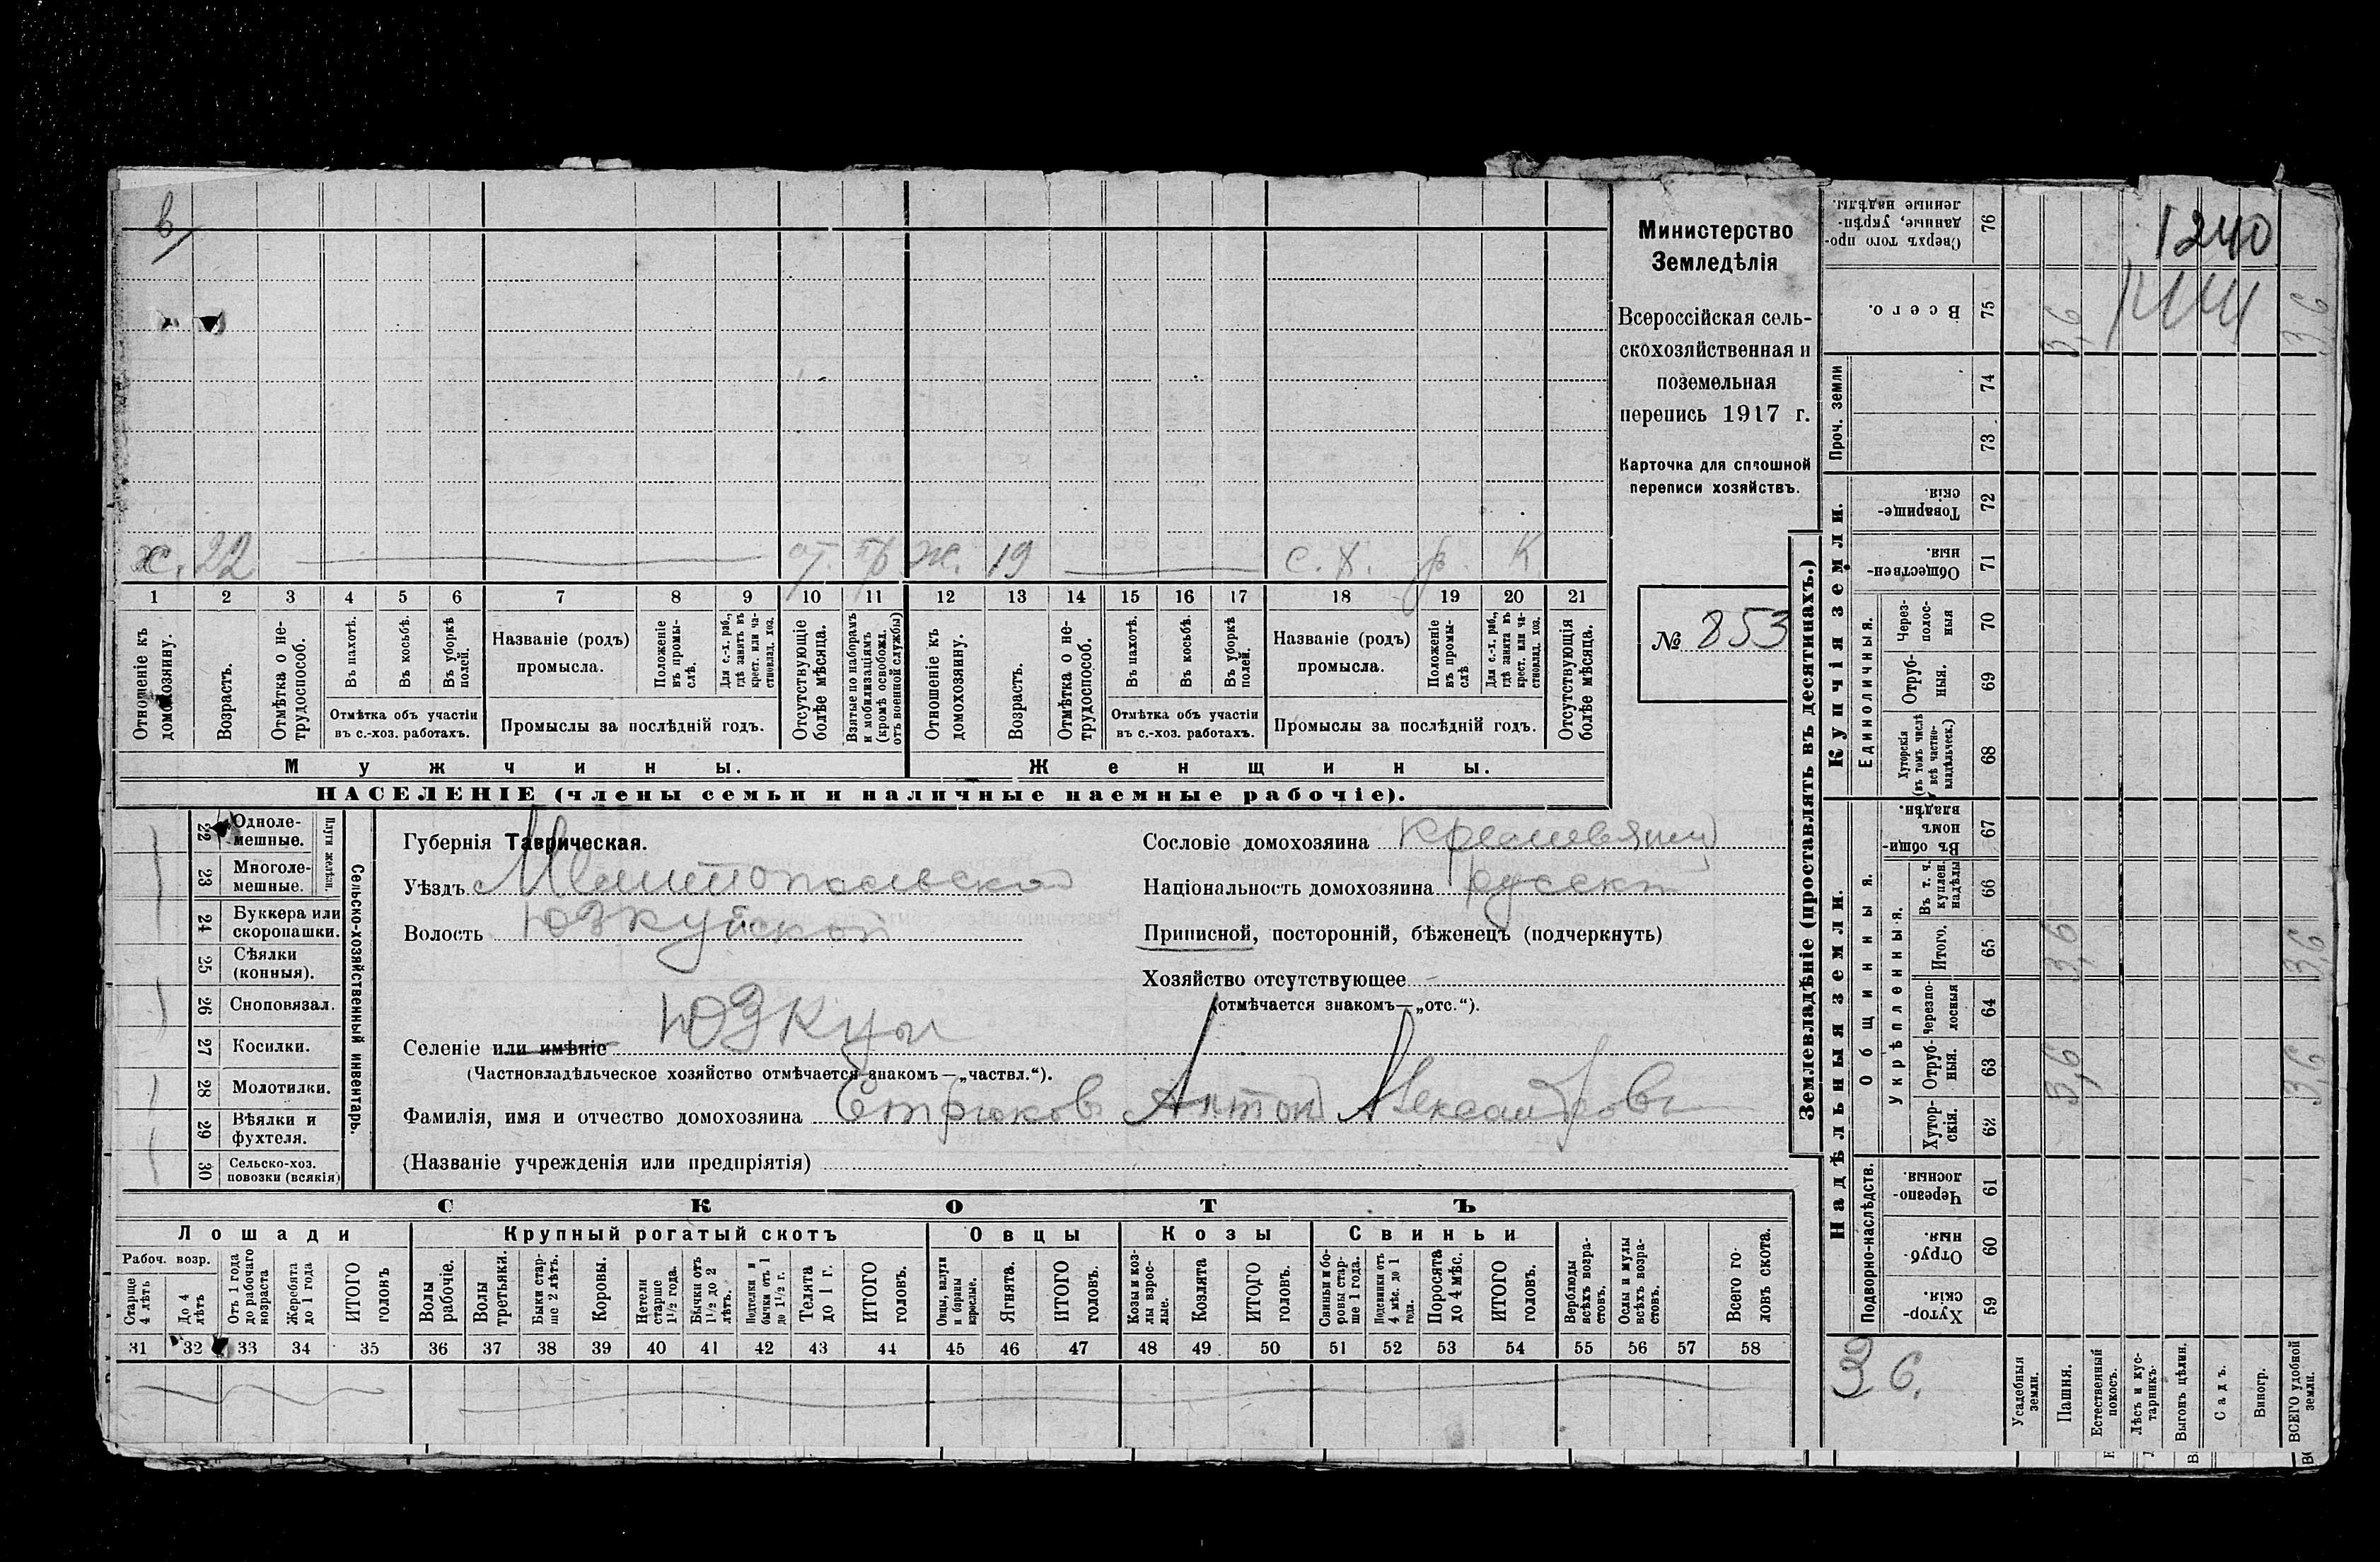 в
Министерство
Земледѣлія
Всероссійская сель-
скохозяйственная и
поземельная
перепись 1917 г.
Карточка для сплошной
переписи хозяйствъ.
№ 853
х. 22 от. тр. ж. 19 с. х. р. К
1 2 3 4 5 6 7 8 9 10 11 12 13 14 15 16 17 18 19 20 21
Отношеніе къ домохозяину.
Возрастъ.
Отмѣтка о не-трудоспособ.
Въ пахотѣ.
Въ косьбѣ.
Въ уборкѣ полей.
Отмѣтка объ участіи
въ с.-хоз. работахъ.
Названіе (родъ)
промысла.
Положеніе въ промы-слѣ.
Для с.-х. раб., гдѣ занятъ въ крест. или ча-стновлад. хоз.
Промыслы за послѣдній годъ.
Отсутствующіе болѣе мѣсяца.
Взятые по наборамъ и мобилизаціямъ (кромѣ освобожд. отъ военной службы)
Отношеніе къ домохозяину.
Возрастъ.
Отмѣтка о не-трудоспособ.
Въ пахотѣ.
Въ косьбѣ.
Въ уборкѣ полей.
Отмѣтка объ участіи
въ с.-хоз. работахъ.
Названіе (родъ)
промысла.
Положеніе въ промы-слѣ
Для с.-х. раб., гдѣ занята въ крест. или ча-стновлад. хоз.
Промыслы за послѣдній годъ.
Отсутствующія болѣе мѣсяца.
Мужчины.
Женщины.
НАСЕЛЕНІЕ (члены семьи и наличные наемные рабочіе).
22 Однолемешные.
23 Многолемешные.
Плуги желѣзн.
24 Буккера или скоропашки.
25 Сѣялки (конныя).
26 Сноповязал.
27 Косилки.
28 Молотилки.
29 Вѣялки и фухтеля.
30 Сельско-хоз. повозки (всякія)
Сельско-хозяйственный инвентарь.
Губернія Таврическая.
Уѣздъ Мелитопольской
Волость Юзкуйской
Селеніе или имѣніе Юзкуи
(Частновладѣльческое хозяйство отмѣчается знакомъ—„частвл.“).
Фамилія, имя и отчество домохозяина Стрюковъ Антон Александровъ
(Названіе учрежденія или предпріятія)
Сословіе домохозяина
Національность домохозяина русск
Приписной, посторонній, бѣженецъ (подчеркнуть)
Хозяйство отсутствующее –
(отмѣчается знакомъ—„отс.“).
СКОТЪ
Лошади
Крупный рогатый скотъ
Овцы
Козы
Свиньи
Рабоч. возр.
Старше 4 лѣтъ
До 4 лѣтъ
Отъ 1 года до рабочаго возраста
Жеребята до 1 года
ИТОГО головъ
Волы рабочіе.
Волы третьяки.
Быки стар-ше 2 лѣтъ.
Коровы.
Нетели старше 1½ года.
Бычки отъ 1½ до 2 лѣтъ.
Подтелки и бычки отъ 1 до 1½ г.
Телята до 1 г.
ИТОГО головъ.
Овцы, валухи и бараны взрослые.
Ягнята.
ИТОГО головъ.
Козы и коз-лы взрос-лые.
Козлята
ИТОГО головъ.
Свиньи и бо-ровы стар-ше 1 года.
Подсвинки отъ 4 мѣс. до 1 года.
Поросята до 4 мѣс.
ИТОГО головъ.
Верблюды всѣхъ возра-стовъ.
Ослы и мулы всѣхъ возра-стовъ.
Всего го-ловъ скота.
31 32 33 34 35 36 37 38 39 40 41 42 43 44 45 46 47 48 49 50 51 52 53 54 55 56 57 58
Землевладѣніе (проставлять въ десятинахъ.)
1240
Сверхъ того про-данные, укрѣп-ленные надѣлы. 76
Всего. 75 3,6 3,6
Проч. земли
74
73
Купчія земли.
Товарище-скія. 72
Обществен-ныя. 71
Единоличныя.
Через-полос-ныя 70
Отруб-ныя. 69
Хуторскія (въ томъ числѣ всѣ частно-владѣльческ.) 68
Надѣльныя земли.
Общинныя.
Въ общин-номъ владѣн. 67
Укрѣпленныя.
Въ т. ч. куплен. надѣлы 66
Итого. 65 3,6 3,6
Черезпо-лосныя 64
Отруб-ныя. 63 3,6 3,6
Хутор-скія. 62
Подворно-наслѣдств.
Черезпо-лосныя. 61
Отруб-ныя. 60
Хутор-скія. 59
3,6.
Усадебныя земли.
Пашня.
Естественный покосъ.
Лѣсъ и кус-тарникъ.
Выгонъ цѣлин.
Садъ.
Виногр.
ВСЕГО удобной земли.